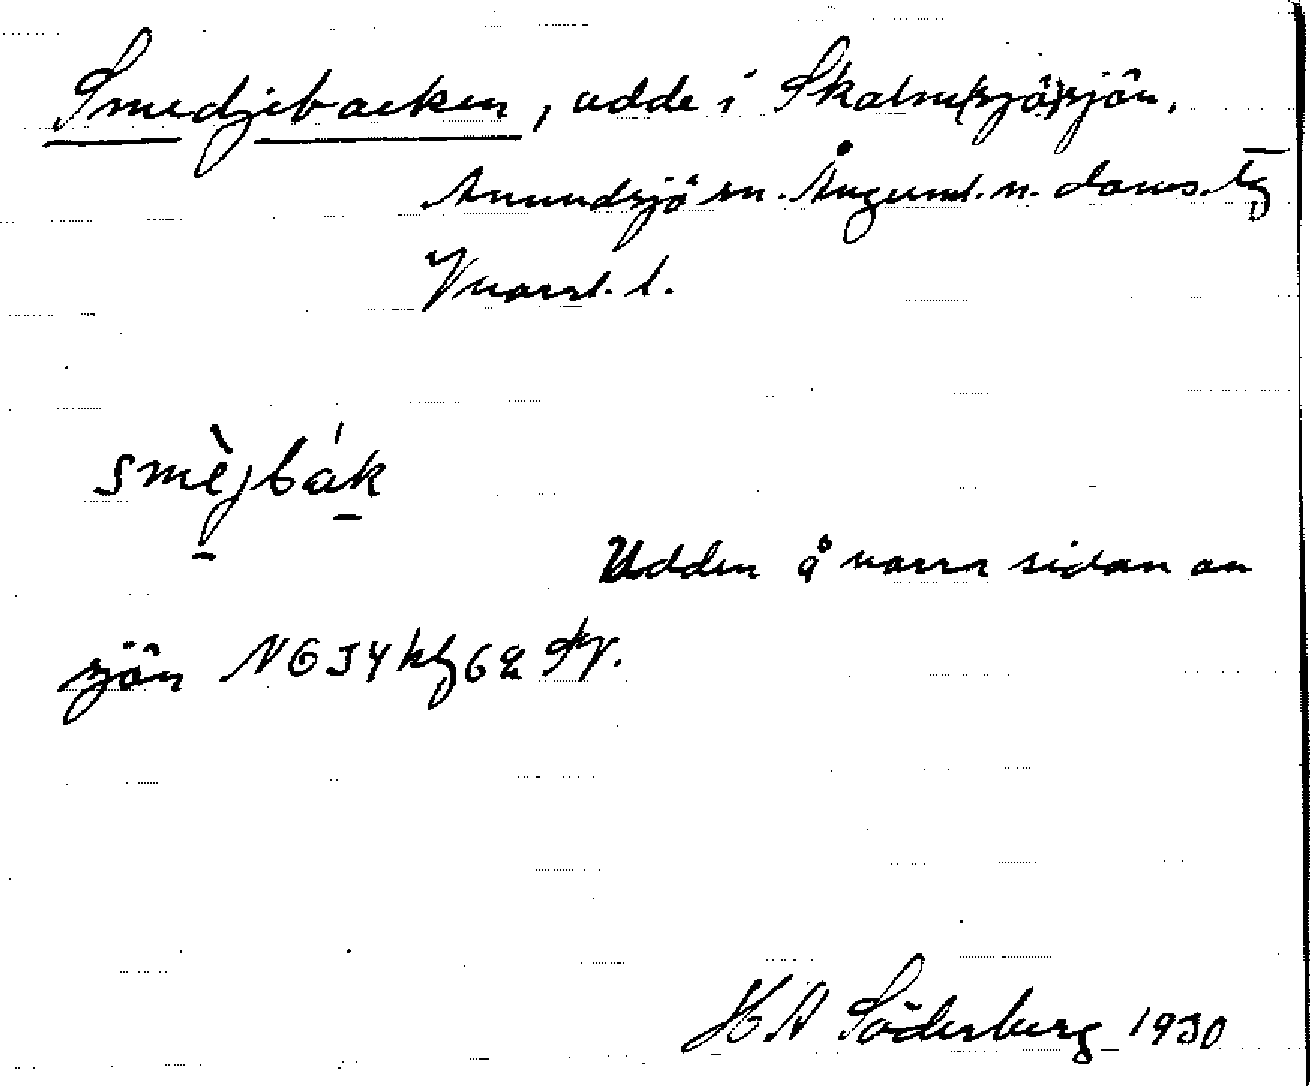 Smedjebacken, udde i Skalm(sjö)sjön,
Anundsjö sn. Ångerml. n. doms. tg
Vnorrl. l.
smèjbák
Udden å norra sidan av
sjön NG 54
H A Söderberg 1930